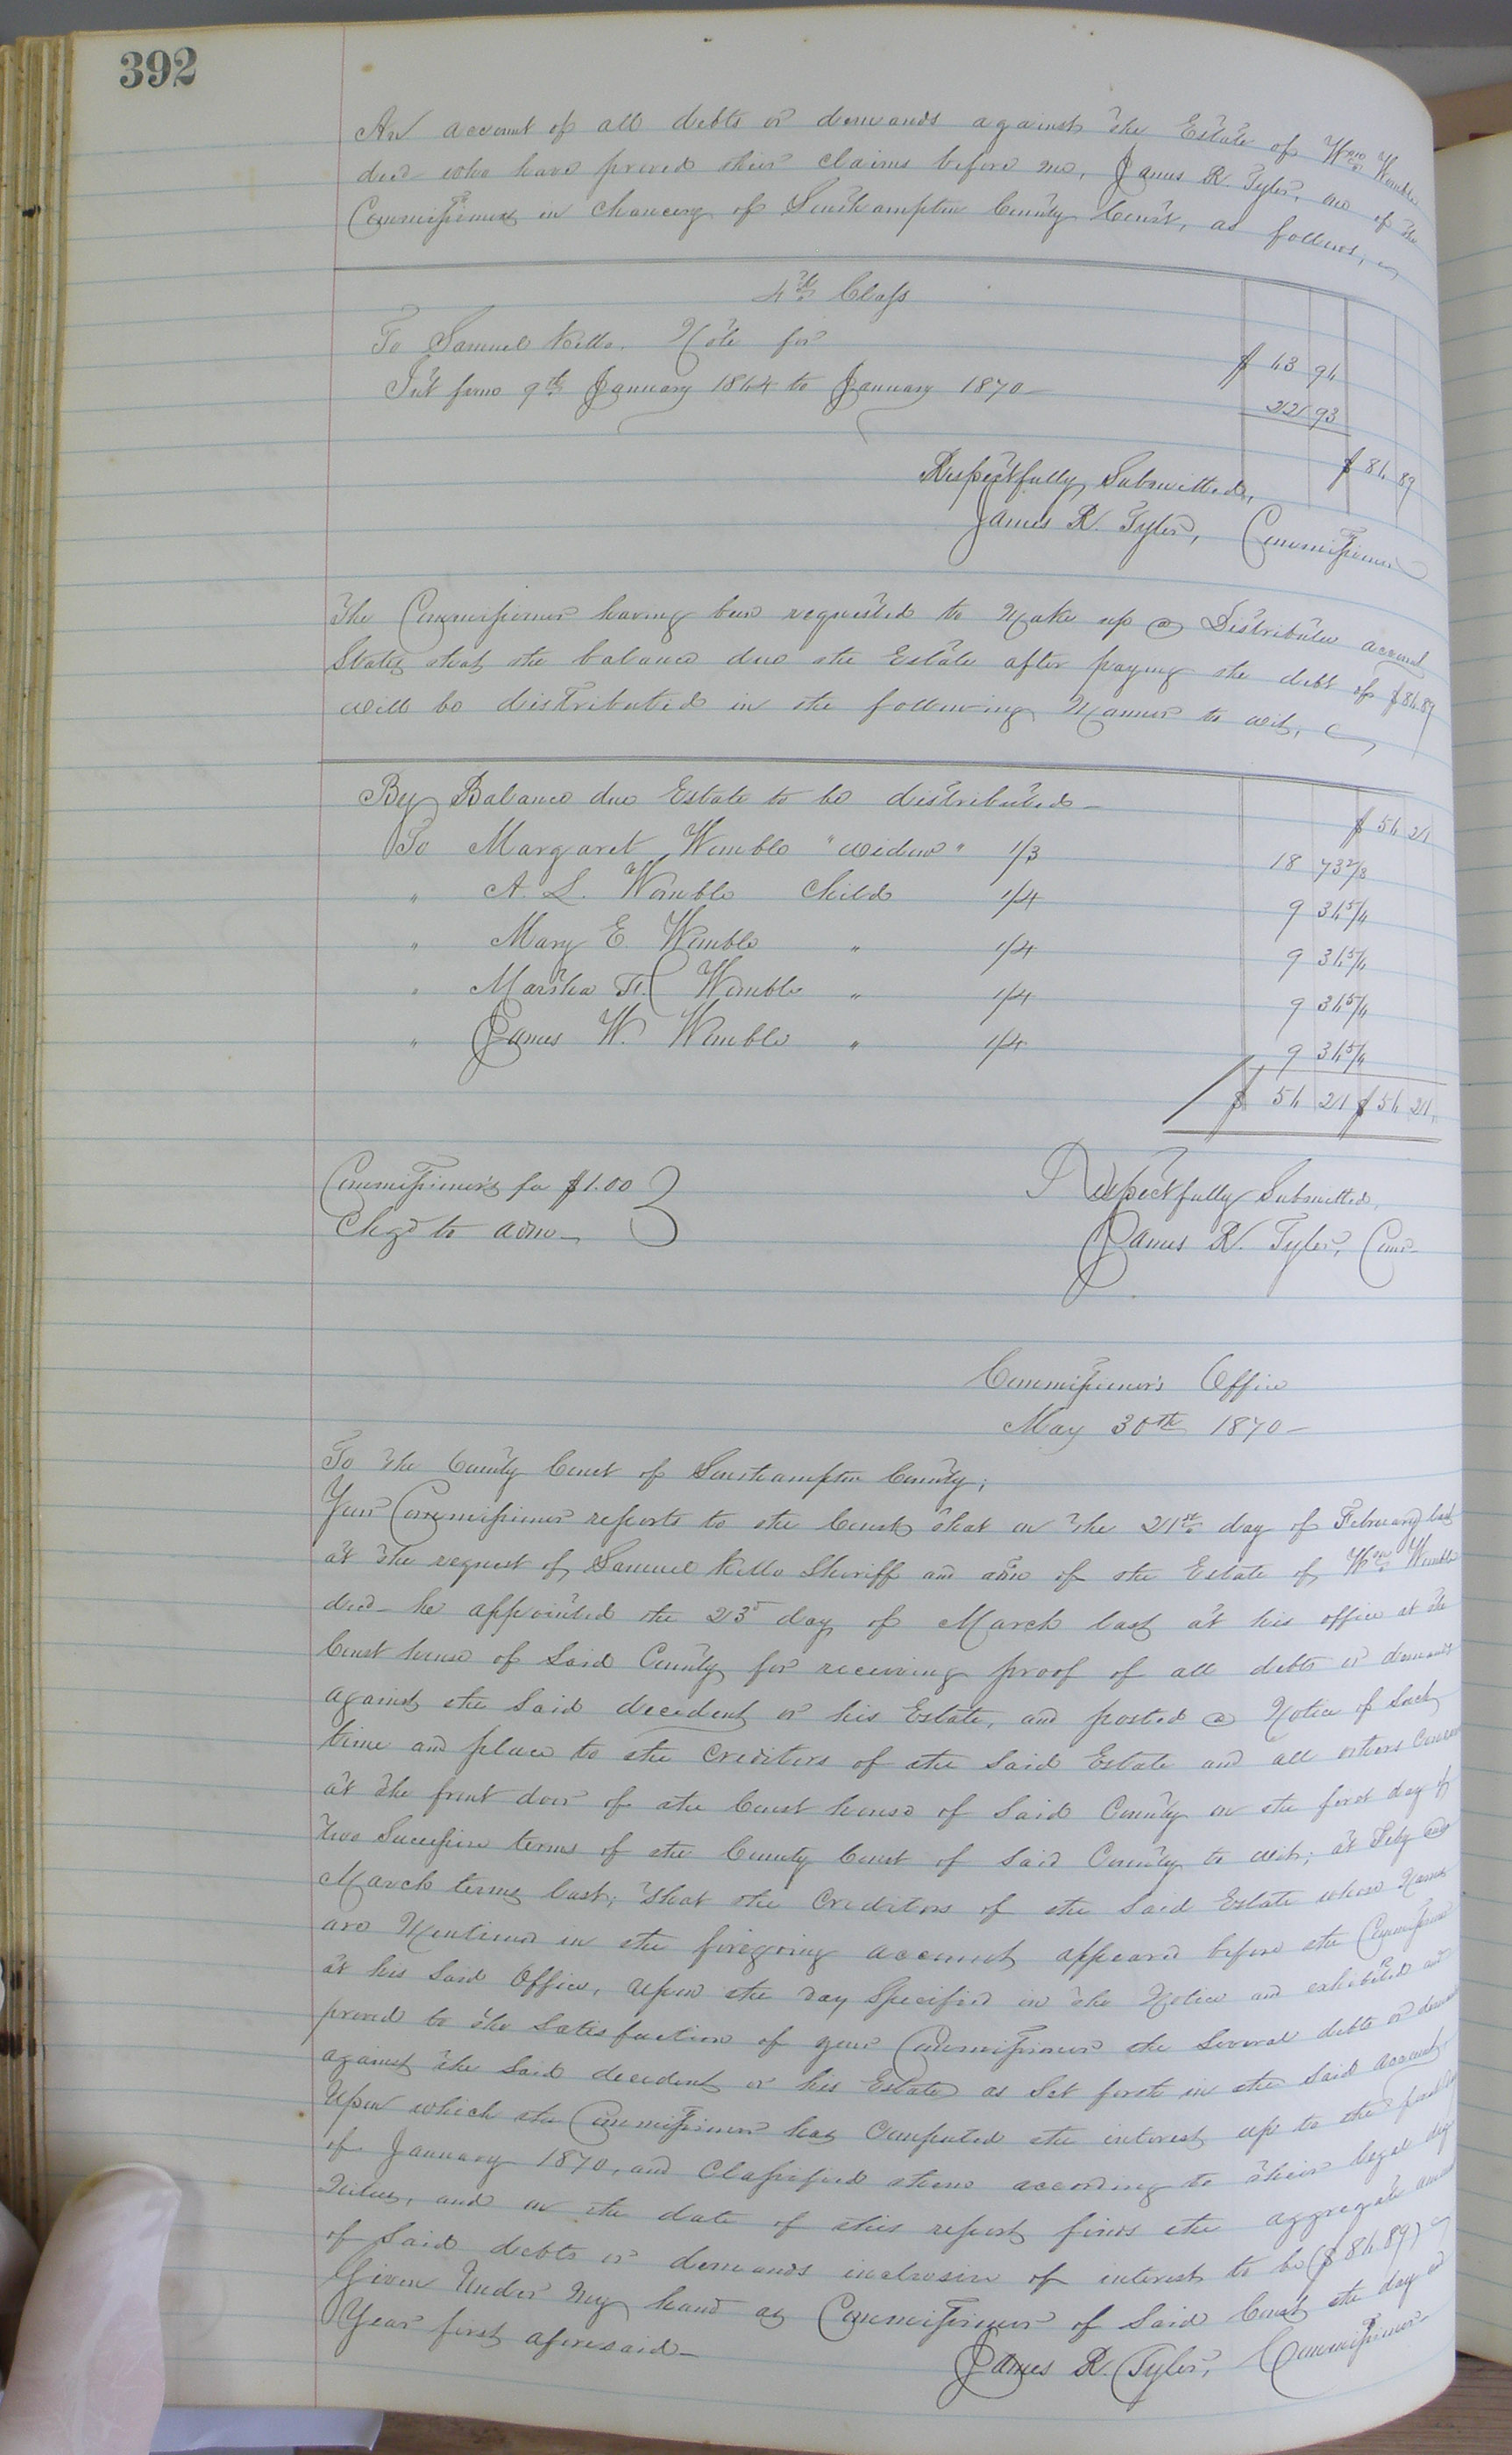 392
An account of all debts or demands against the Estate of Wm Womble
decd who have proved their claims before me, James R. Tyler, one of the
Commissioners in Chancery of Southampton County Court, as follows,
4th Class
To Samuel Kello. Note for $ 63 96
Int from 9th January 1864 to January 1870 — 22 93
$ 86 89
Respectfully Submitted,
James R. Tyler, Commissioner
The Commissioner having been requested to make up a Distributive account
States that the balance due the Estate after paying the debt of $86.89
will be distributed in the following manner to wit,
By Balance due Estate to be distributed — $ 56 21
To Margaret Womble "widow" 1/3 18 73 2/3
" A. L. Womble Child 1/4 9 36 5/6
" Mary E Womble " 1/4 9 36 5/6
" Martha H. Womble " 1/4 9 36 5/6
" James W. Womble " 1/4 9 36 5/6
$ 56 21 $ 56 21
Commissioner's fee $1.00
Chgd to admr —
Respectfully Submitted,
James R. Tyler, Comr —
Commissioner's Office
May 30th 1870 —
To the County Court of Southampton County;
Your Commissioner reports to the Court that on the 21st day of February last
at the request of Samuel Kello Sheriff and admr of the Estate of Wm Womble
decd — he appointed the 23d day of March last at his office at the
Court house of said County for receiving proof of all debts or demands
against the said decedent or his Estate, and posted a Notice of such
time and place to the Creditors of the said Estate and all others
at the front door of the Court house of said County on the first day of
two Successive terms of the County Court of said County to wit; at Feby and
March terms last; that the Creditors of the said Estate whose Names
are Mentioned in the foregoing account, appeared before the Commissioner
at his said Office, upon the day Specified in the Notice and exhibited and
proved to the Satisfaction of your Commissioner the Several debts or demands
against the said decedent or his Estate as Set forth in the said account,
Upon which the Commissioner has Computed the interest up to the first day
of January 1870, and Classified them according to their legal dig
nities, and on the date of this report finds the aggregate amount
of said debts or demands inclusive of interest to be ($86.89)
Given Under My hand as Commissioner of said Court the day and
Year first aforesaid —
James R. Tyler, Commissioner